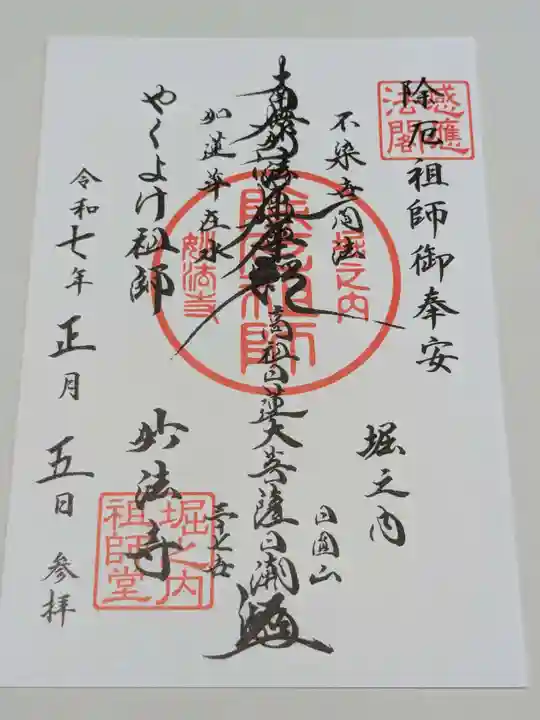 除厄祖師御奉安
堀之内
不染世間法
日圓山
南無妙法蓮華経
高祖日蓮大菩薩
如蓮華在水
やくよけ祖師
妙法寺
令和七年正月五日参拝
感應
法閣
堀之内
除厄祖師
妙法寺
堀之内
祖師堂